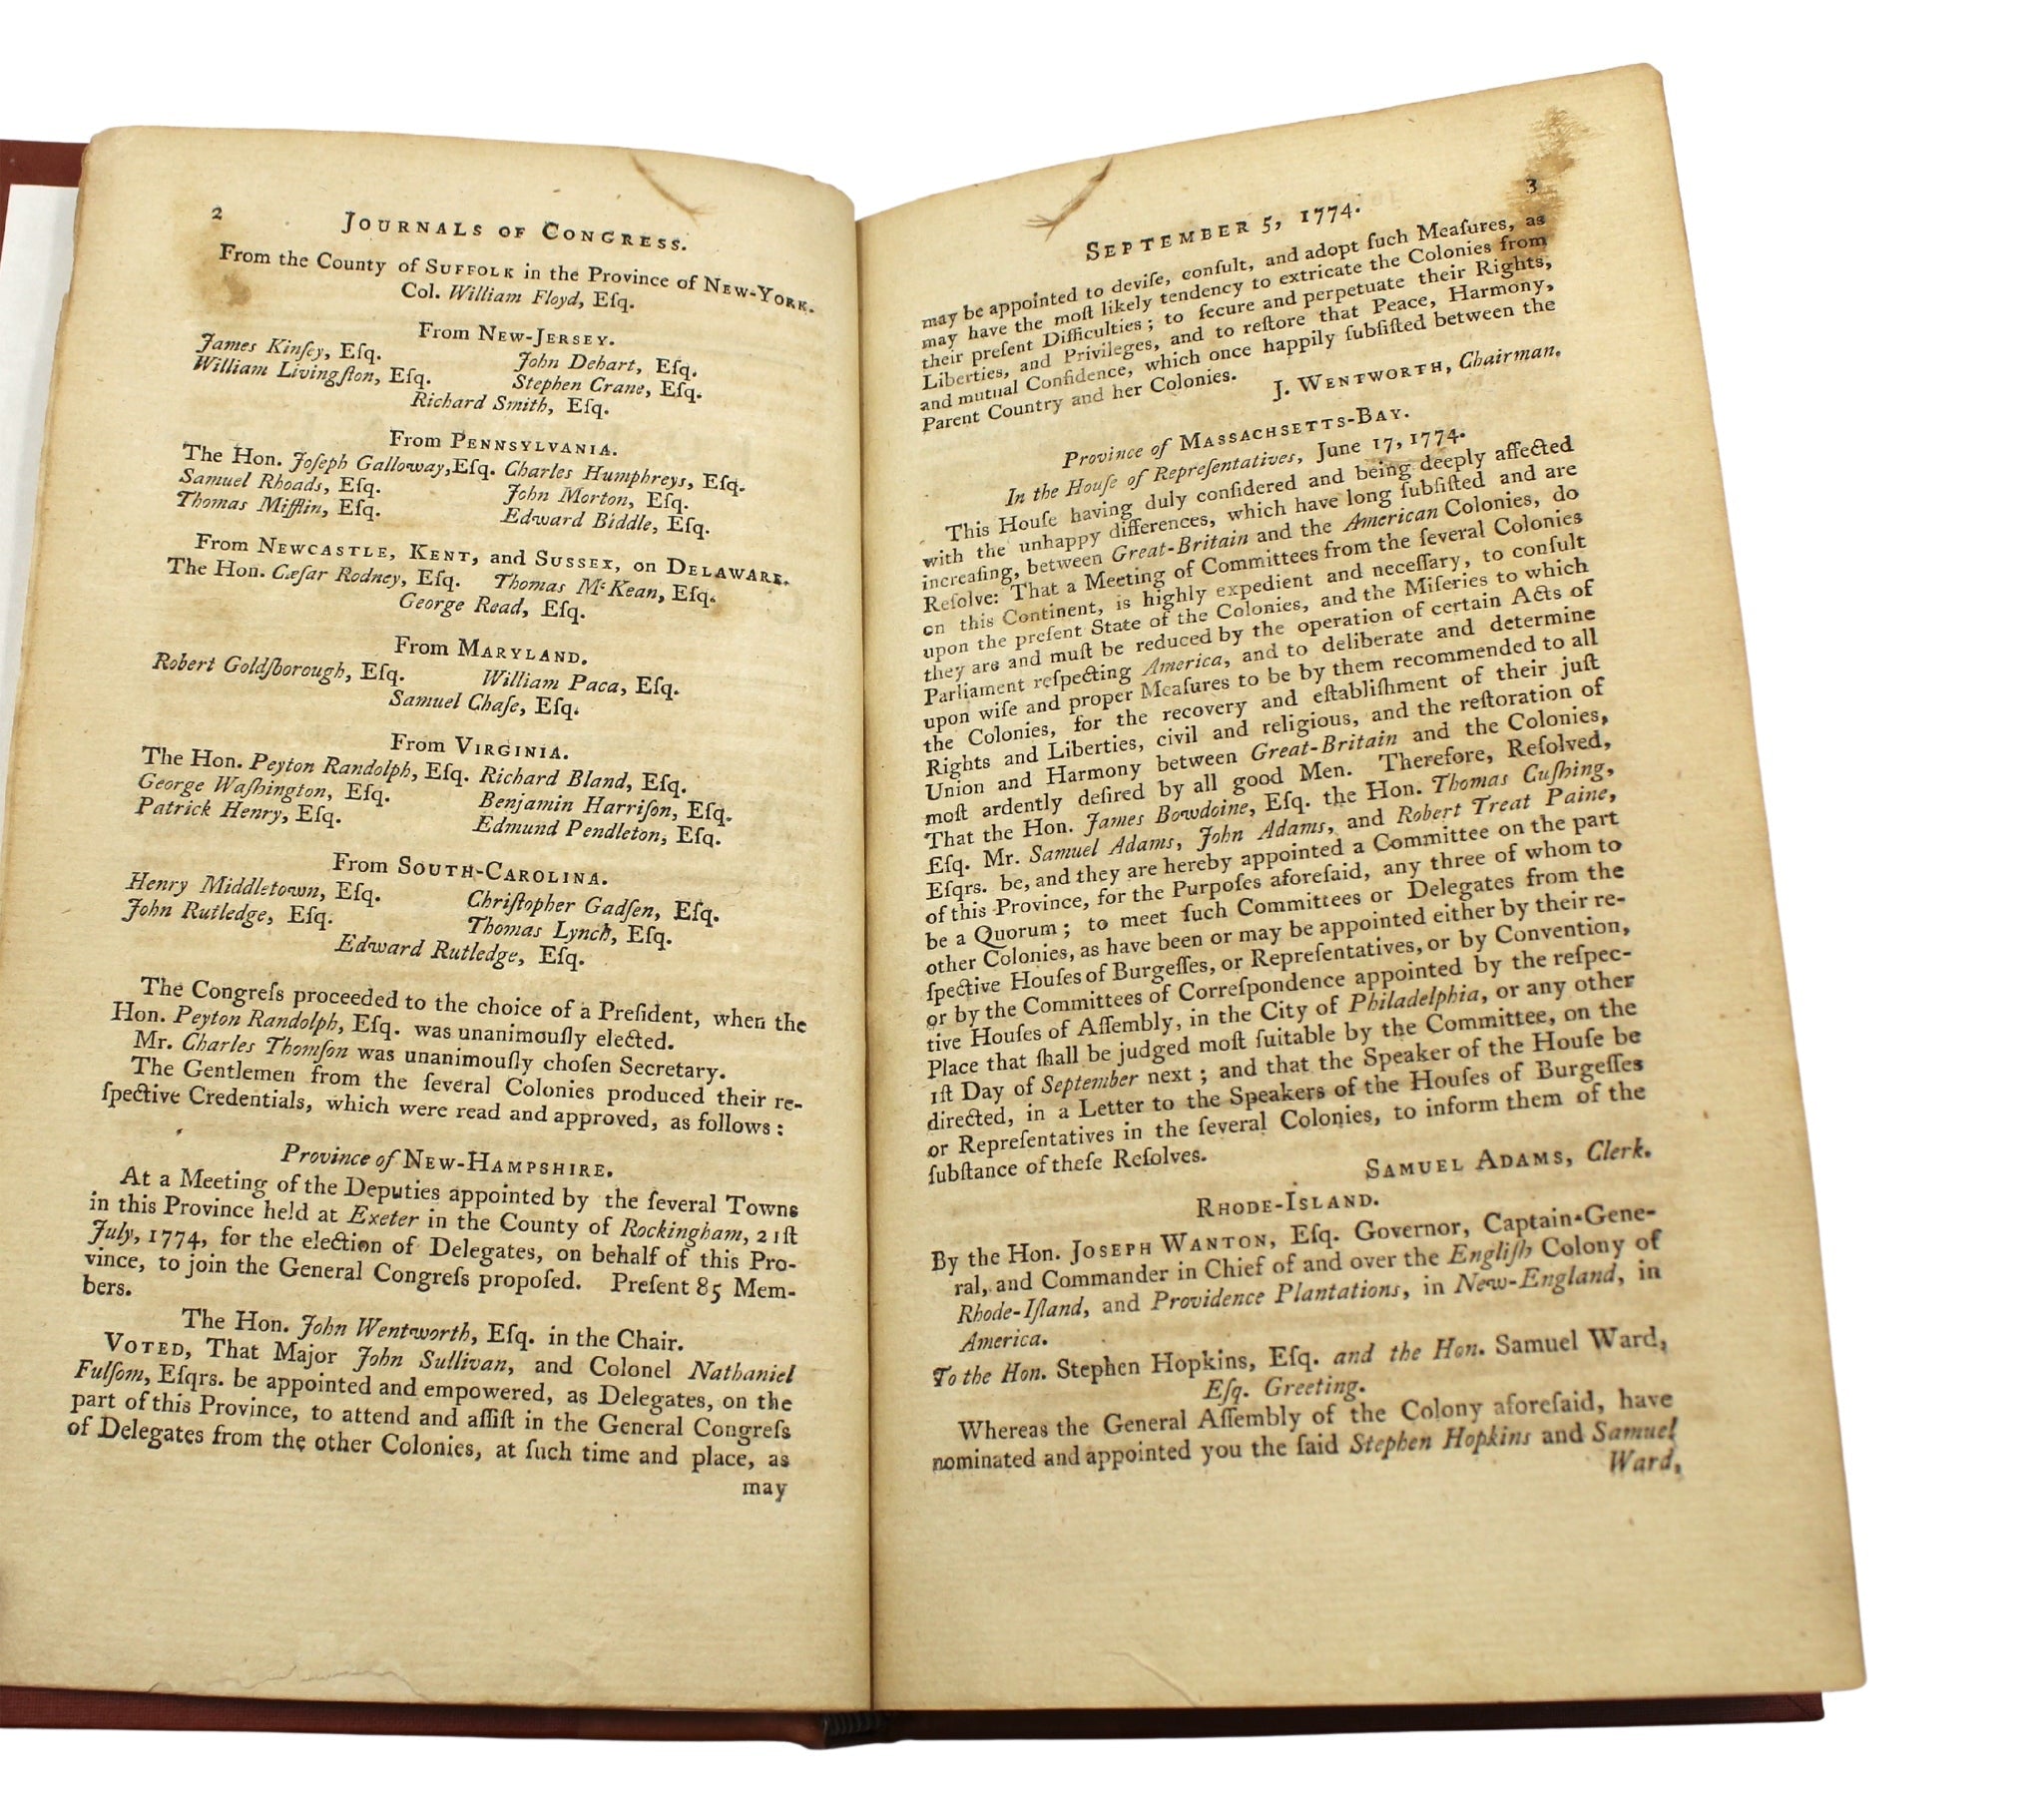 2
JOURNALS OF CONGRESS.
From the County of SUFFOLK in the Province of NEW-YORK.
Col. William Floyd, Eſq.
From NEW-JERSEY.
James Kinſey, Eſq. John Dehart, Eſq.
William Livingſton, Eſq. Stephen Crane, Eſq.
Richard Smith, Eſq.
From PENNSYLVANIA.
The Hon. Joſeph Galloway, Eſq. Charles Humphreys, Eſq.
Samuel Rhoads, Eſq. John Morton, Eſq.
Thomas Mifflin, Eſq. Edward Biddle, Eſq.
From NEWCASTLE, KENT, and SUSSEX, on DELAWARE.
The Hon. Cæſar Rodney, Eſq. Thomas Mc Kean, Eſq.
George Read, Eſq.
From MARYLAND.
Robert Goldſborough, Eſq. William Paca, Eſq.
Samuel Chaſe, Eſq.
From VIRGINIA.
The Hon. Peyton Randolph, Eſq. Richard Bland, Eſq.
George Waſhington, Eſq. Benjamin Harriſon, Eſq.
Patrick Henry, Eſq. Edmund Pendleton, Eſq.
From SOUTH-CAROLINA.
Henry Middletown, Eſq. Chriſtopher Gadſen, Eſq.
John Rutledge, Eſq. Thomas Lynch, Eſq.
Edward Rutledge, Eſq.
The Congreſs proceeded to the choice of a Preſident, when the
Hon. Peyton Randolph, Eſq. was unanimouſly elected.
Mr. Charles Thomſon was unanimouſly choſen Secretary.
The Gentlemen from the ſeveral Colonies produced their re-
ſpective Credentials, which were read and approved, as follows:
Province of NEW-HAMPSHIRE.
At a Meeting of the Deputies appointed by the ſeveral Towns
in this Province held at Exeter in the County of Rockingham, 21ſt
July, 1774, for the election of Delegates, on behalf of this Pro-
vince, to join the General Congreſs propoſed. Preſent 85 Mem-
bers.
The Hon. John Wentworth, Eſq. in the Chair.
VOTED, That Major John Sullivan, and Colonel Nathaniel
Fulſom, Eſqrs. be appointed and empowered, as Delegates, on the
part of this Province, to attend and aſſiſt in the General Congreſs
of Delegates from the other Colonies, at ſuch time and place, as
may
SEPTEMBER 5, 1774.
3
may be appointed to deviſe, conſult, and adopt ſuch Meaſures, as
may have the moſt likely tendency to extricate the Colonies from
their preſent Difficulties; to ſecure and perpetuate their Rights,
Liberties, and Privileges, and to reſtore that Peace, Harmony,
and mutual Confidence, which once happily ſubſiſted between the
Parent Country and her Colonies.
J. WENTWORTH, Chairman.
Province of MASSACHSETTS-BAY.
In the Houſe of Repreſentatives, June 17, 1774.
This Houſe having duly conſidered and being deeply affected
with the unhappy differences, which have long ſubſiſted and are
increaſing, between Great-Britain and the American Colonies, do
Reſolve: That a Meeting of Committees from the ſeveral Colonies
on this Continent, is highly expedient and neceſſary, to conſult
upon the preſent State of the Colonies, and the Miſeries to which
they are and muſt be reduced by the operation of certain Acts of
Parliament reſpecting America, and to deliberate and determine
upon wiſe and proper Meaſures to be by them recommended to all
the Colonies, for the recovery and eſtabliſhment of their juſt
Rights and Liberties, civil and religious, and the reſtoration of
Union and Harmony between Great-Britain and the Colonies,
moſt ardently deſired by all good Men. Therefore, Reſolved,
That the Hon. James Bowdoine, Eſq. the Hon. Thomas Cuſhing,
Eſq. Mr. Samuel Adams, John Adams, and Robert Treat Paine,
Eſqrs. be, and they are hereby appointed a Committee on the part
of this Province, for the Purpoſes aforeſaid, any three of whom to
be a Quorum; to meet ſuch Committees or Delegates from the
other Colonies, as have been or may be appointed either by their re-
ſpective Houſes of Burgeſſes, or Repreſentatives, or by Convention,
or by the Committees of Correſpondence appointed by the reſpec-
tive Houſes of Aſſembly, in the City of Philadelphia, or any other
Place that ſhall be judged moſt ſuitable by the Committee, on the
1ſt Day of September next; and that the Speaker of the Houſe be
directed, in a Letter to the Speakers of the Houſes of Burgeſſes
or Repreſentatives in the ſeveral Colonies, to inform them of the
ſubſtance of theſe Reſolves.
SAMUEL ADAMS, Clerk.
RHODE-ISLAND.
By the Hon. JOSEPH WANTON, Eſq. Governor, Captain-Gene-
ral, and Commander in Chief of and over the Engliſh Colony of
Rhode-Iſland, and Providence Plantations, in New-England, in
America.
To the Hon. Stephen Hopkins, Eſq. and the Hon. Samuel Ward,
Eſq. Greeting.
Whereas the General Aſſembly of the Colony aforeſaid, have
nominated and appointed you the ſaid Stephen Hopkins and Samuel
Ward,